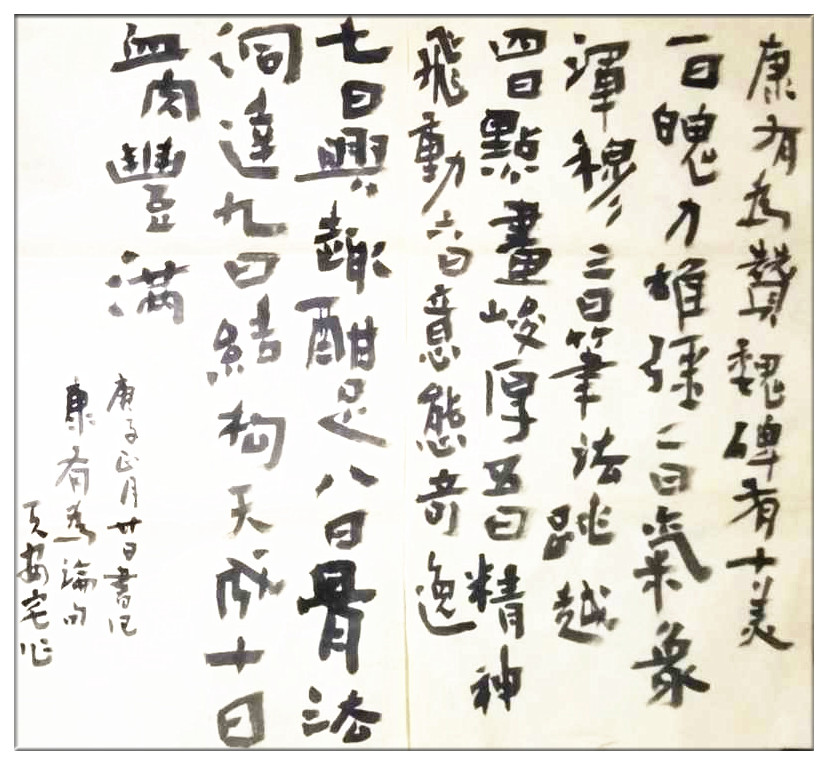 康有为赞魏碑有十美
一曰魄力雄强二曰氣象
渾穆三曰筆法跳越
四曰點畫峻厚五曰精神
飛動六曰意態奇逸
七曰興趣酣足八曰骨法
洞達九曰結构天成十曰
血肉豐满
庚子正月廿日書
康有為論句